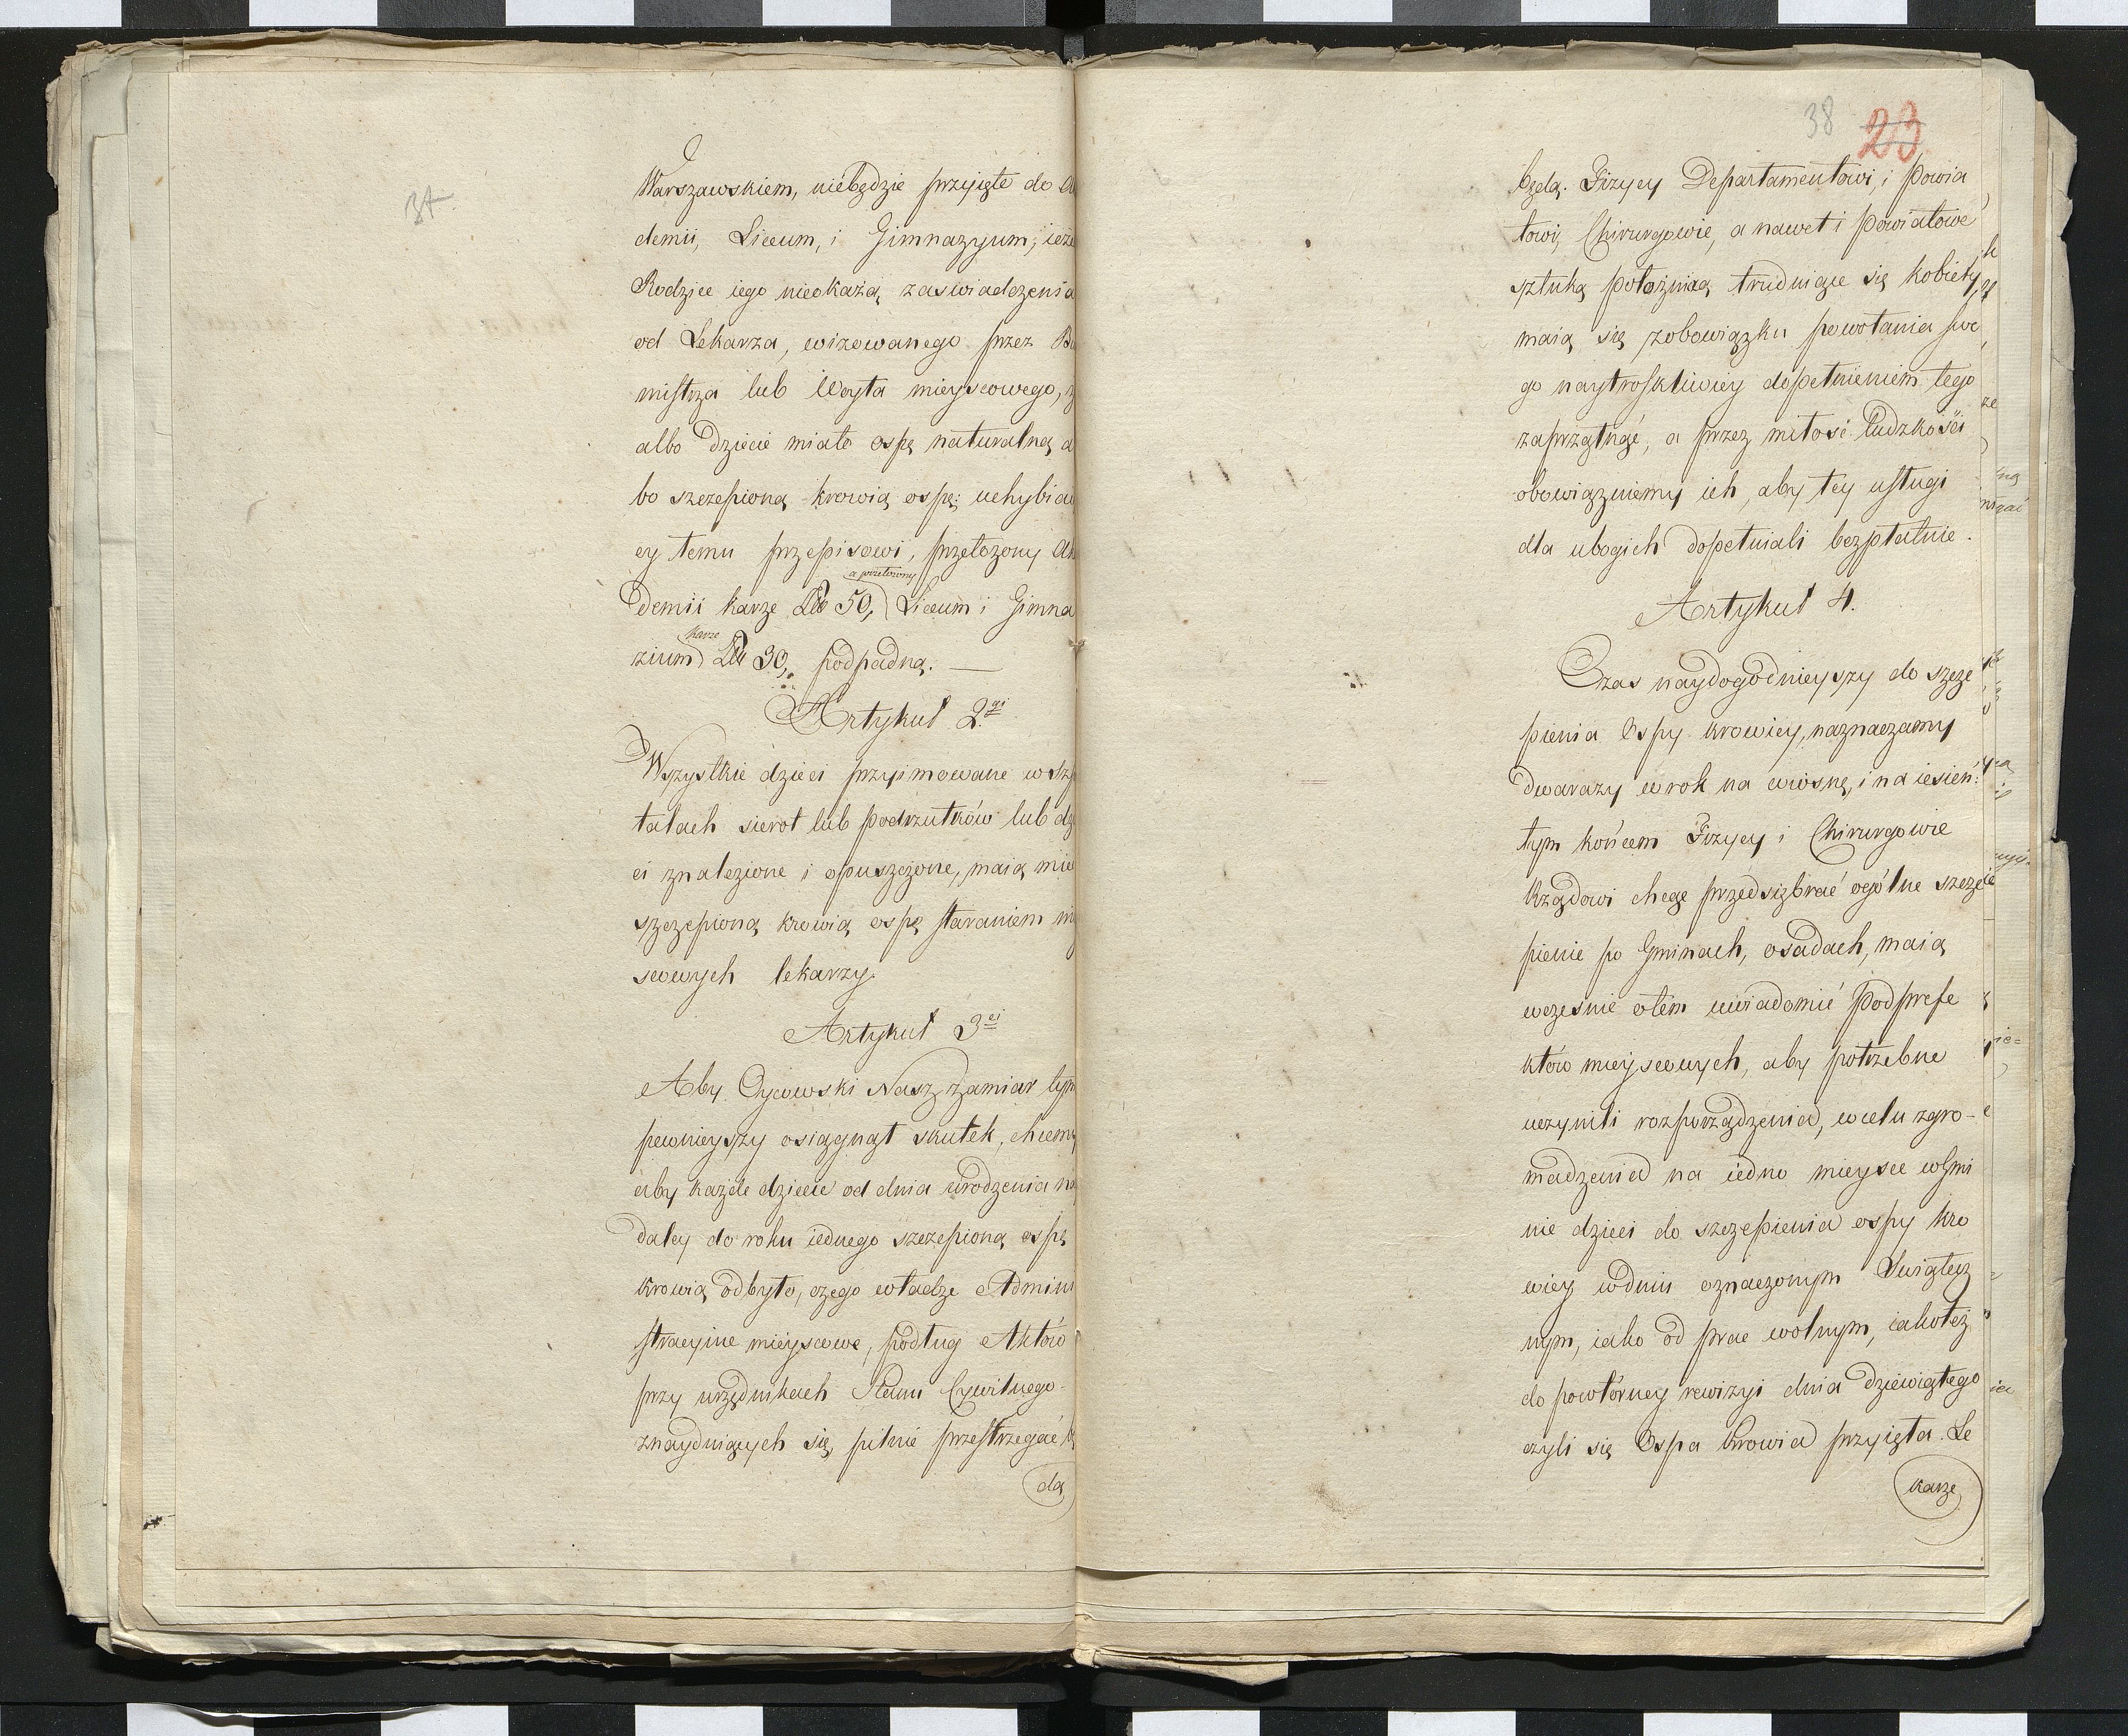 37.
Warszawskiem, niebędzie przyięte do A
demii, Liceum, i Gimnazyum, ieże
Rodzice iego nieokażą zaswiadczenia
od Lekarza, wizowanego przez Bu
mistrza lub Woyta mieyscowego, ż
albo Dziecie miało ospę naturalną a
bo szczepioną krowią ospę: uchybia
cy temu przepisowi, przełożony Ak
a przełożony
Demii karze 50, Liceum i Gimna
karze
zium 30, podpadną. —
Artykuł 2gi
Wszystkie dzieci przyimowane w szp
talach sierot lub podrzutków lub dz
ci znalezione i opuszczone, maią mie
szczepioną krowią ospę staraniem mi
scowych lekarzy.
Artykuł 3ci
Aby Oycowski Nasz zamiar tym
pewnieyszy osiągnął skutek, chcemy
aby każde dziecie od dnia urodzenia na
daley do roku iednego szczepioną ospę
krowią odbyło, czego władze Admini
stracyine mieyscowe, podług Aktów
przy urzędnikach Stanu Cywilnego
znayduiących się, pilnie przestrzegać b
dą
38 23
będą. Fizycy Departamentowi, i Powia
towi, Chirurgowie, a nawet i Powiatowe
sztuką położnią trudniące się kobiety,
maią się zobowiązku powołania swe
go naytroskliwiey dopełnieniem tego
zaprzątnąć, a przez miłość ludzkości
obowiązuiemy ich, aby tey usługi
dla ubogich dopełniali bezpłatnie.
Artykuł 4.
Czas naydogodnieyszy do szcze
pienia Ospy krowiey, naznaczamy
dwarazy w rok na wiosnę, i na iesień:
tym końcem Fizycy i Chirurgowie
Rządowi chcąc przedsięb­rać ogólne szcze
pienie po Gminach, osadach, maią
wcześnie otém uwiadomić Podprefe
któw mieyscowych, aby potrzebne
uczynili rozporządzenia, w celu zgro-
madzenia na iedno mieysce wGmi
nie dzieci do szczepienia ospy kro
wiey w dniu oznaczonym Swiątecz
nym, iako od prac wolnym, iakoteż
do powtórney rewizyi dnia dziewiątego
czyli się Ospa krowia przyięła. Le
karze